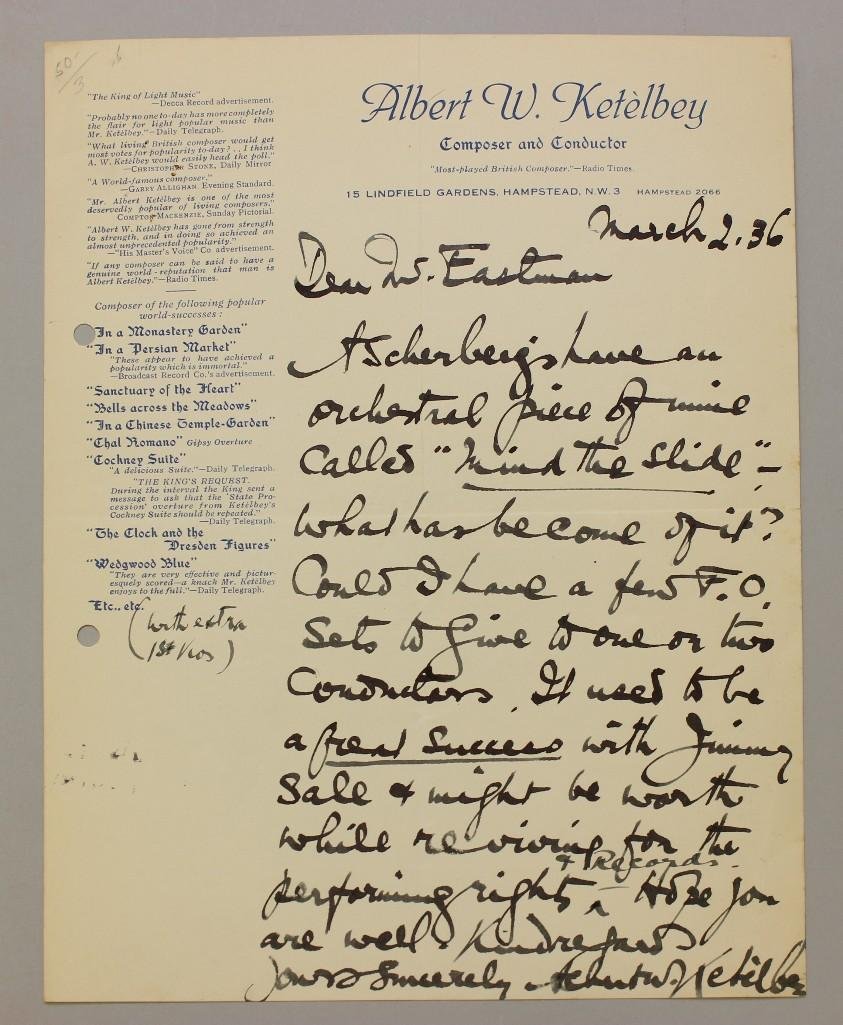 50/3
"The King of Light Music"
—Decca Record advertisement.
"Probably no one to-day has more completely
the flair for light popular music than
Mr. Ketèlbey."—Daily Telegraph.
"What living British composer would get
most votes for popularity to-day? . . I think
A. W. Ketèlbey would easily head the poll."
—Christopher Stone, Daily Mirror
"A World-famous composer."
—Garry Allighan, Evening Standard.
"Mr. Albert Ketèlbey is one of the most
deservedly popular of living composers."
Compton Mackenzie, Sunday Pictorial.
"Albert W. Ketèlbey has gone from strength
to strength, and in doing so achieved an
almost unprecedented popularity."
—"His Master's Voice" Co. advertisement.
"If any composer can be said to have a
genuine world-reputation that man is
Albert Ketèlbey."—Radio Times.
Composer of the following popular
world-successes :
"In a Monastery Garden"
"In a Persian Market"
"These appear to have achieved a
popularity which is immortal."
—Broadcast Record Co.'s advertisement.
"Sanctuary of the Heart"
"Bells across the Meadows"
"In a Chinese Temple-Garden"
"Chal Romano" Gipsy Overture
"Cockney Suite"
"A delicious Suite."—Daily Telegraph.
"THE KING'S REQUEST.
During the interval the King sent a
message to ask that the 'State Pro-
cession' overture from Ketèlbey's
Cockney Suite should be repeated."
—Daily Telegraph.
"The Clock and the
Dresden Figures"
"Wedgwood Blue"
"They are very effective and pictur-
esquely scored—a knack Mr. Ketèlbey
enjoys to the full."—Daily Telegraph.
Etc., etc.
(with extra
1st Vios)
Albert W. Ketèlbey
Composer and Conductor
"Most-played British Composer."—Radio Times.
15 LINDFIELD GARDENS, HAMPSTEAD, N.W. 3 HAMPSTEAD 2066
March 2. 36
Dear Mr. Eastman
Ascherbergs have an
orchestral piece of mine
called "Mind the Slide" –
What has become of it?
Could I have a few F.O.
Sets to give to one or two
Conductors. It used to be
a great success with Jimmy
Sale & might be worth
while reviving for the
& Records.
performing rights. Hope you
are well. Kind regards
Yours Sincerely. Albert W. Ketèlbey